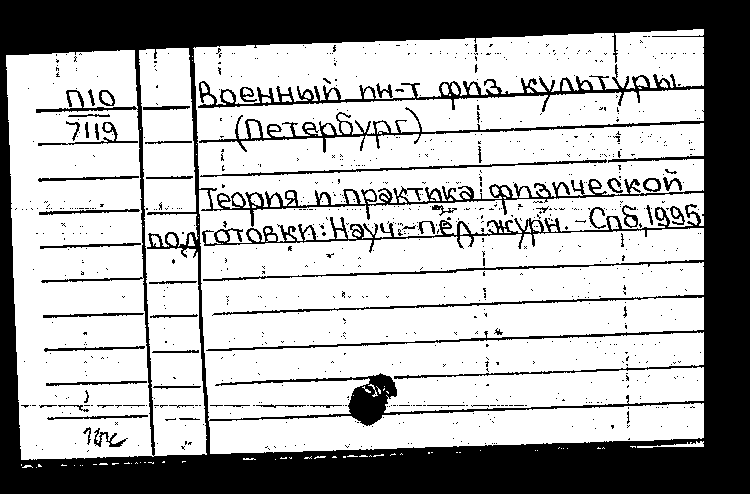 П10
7119
Военный ин-т физ. культуры
(Петербург)
Теория и практика физической
подготовки: Науч.-пед. журн. - Спб, 1995-